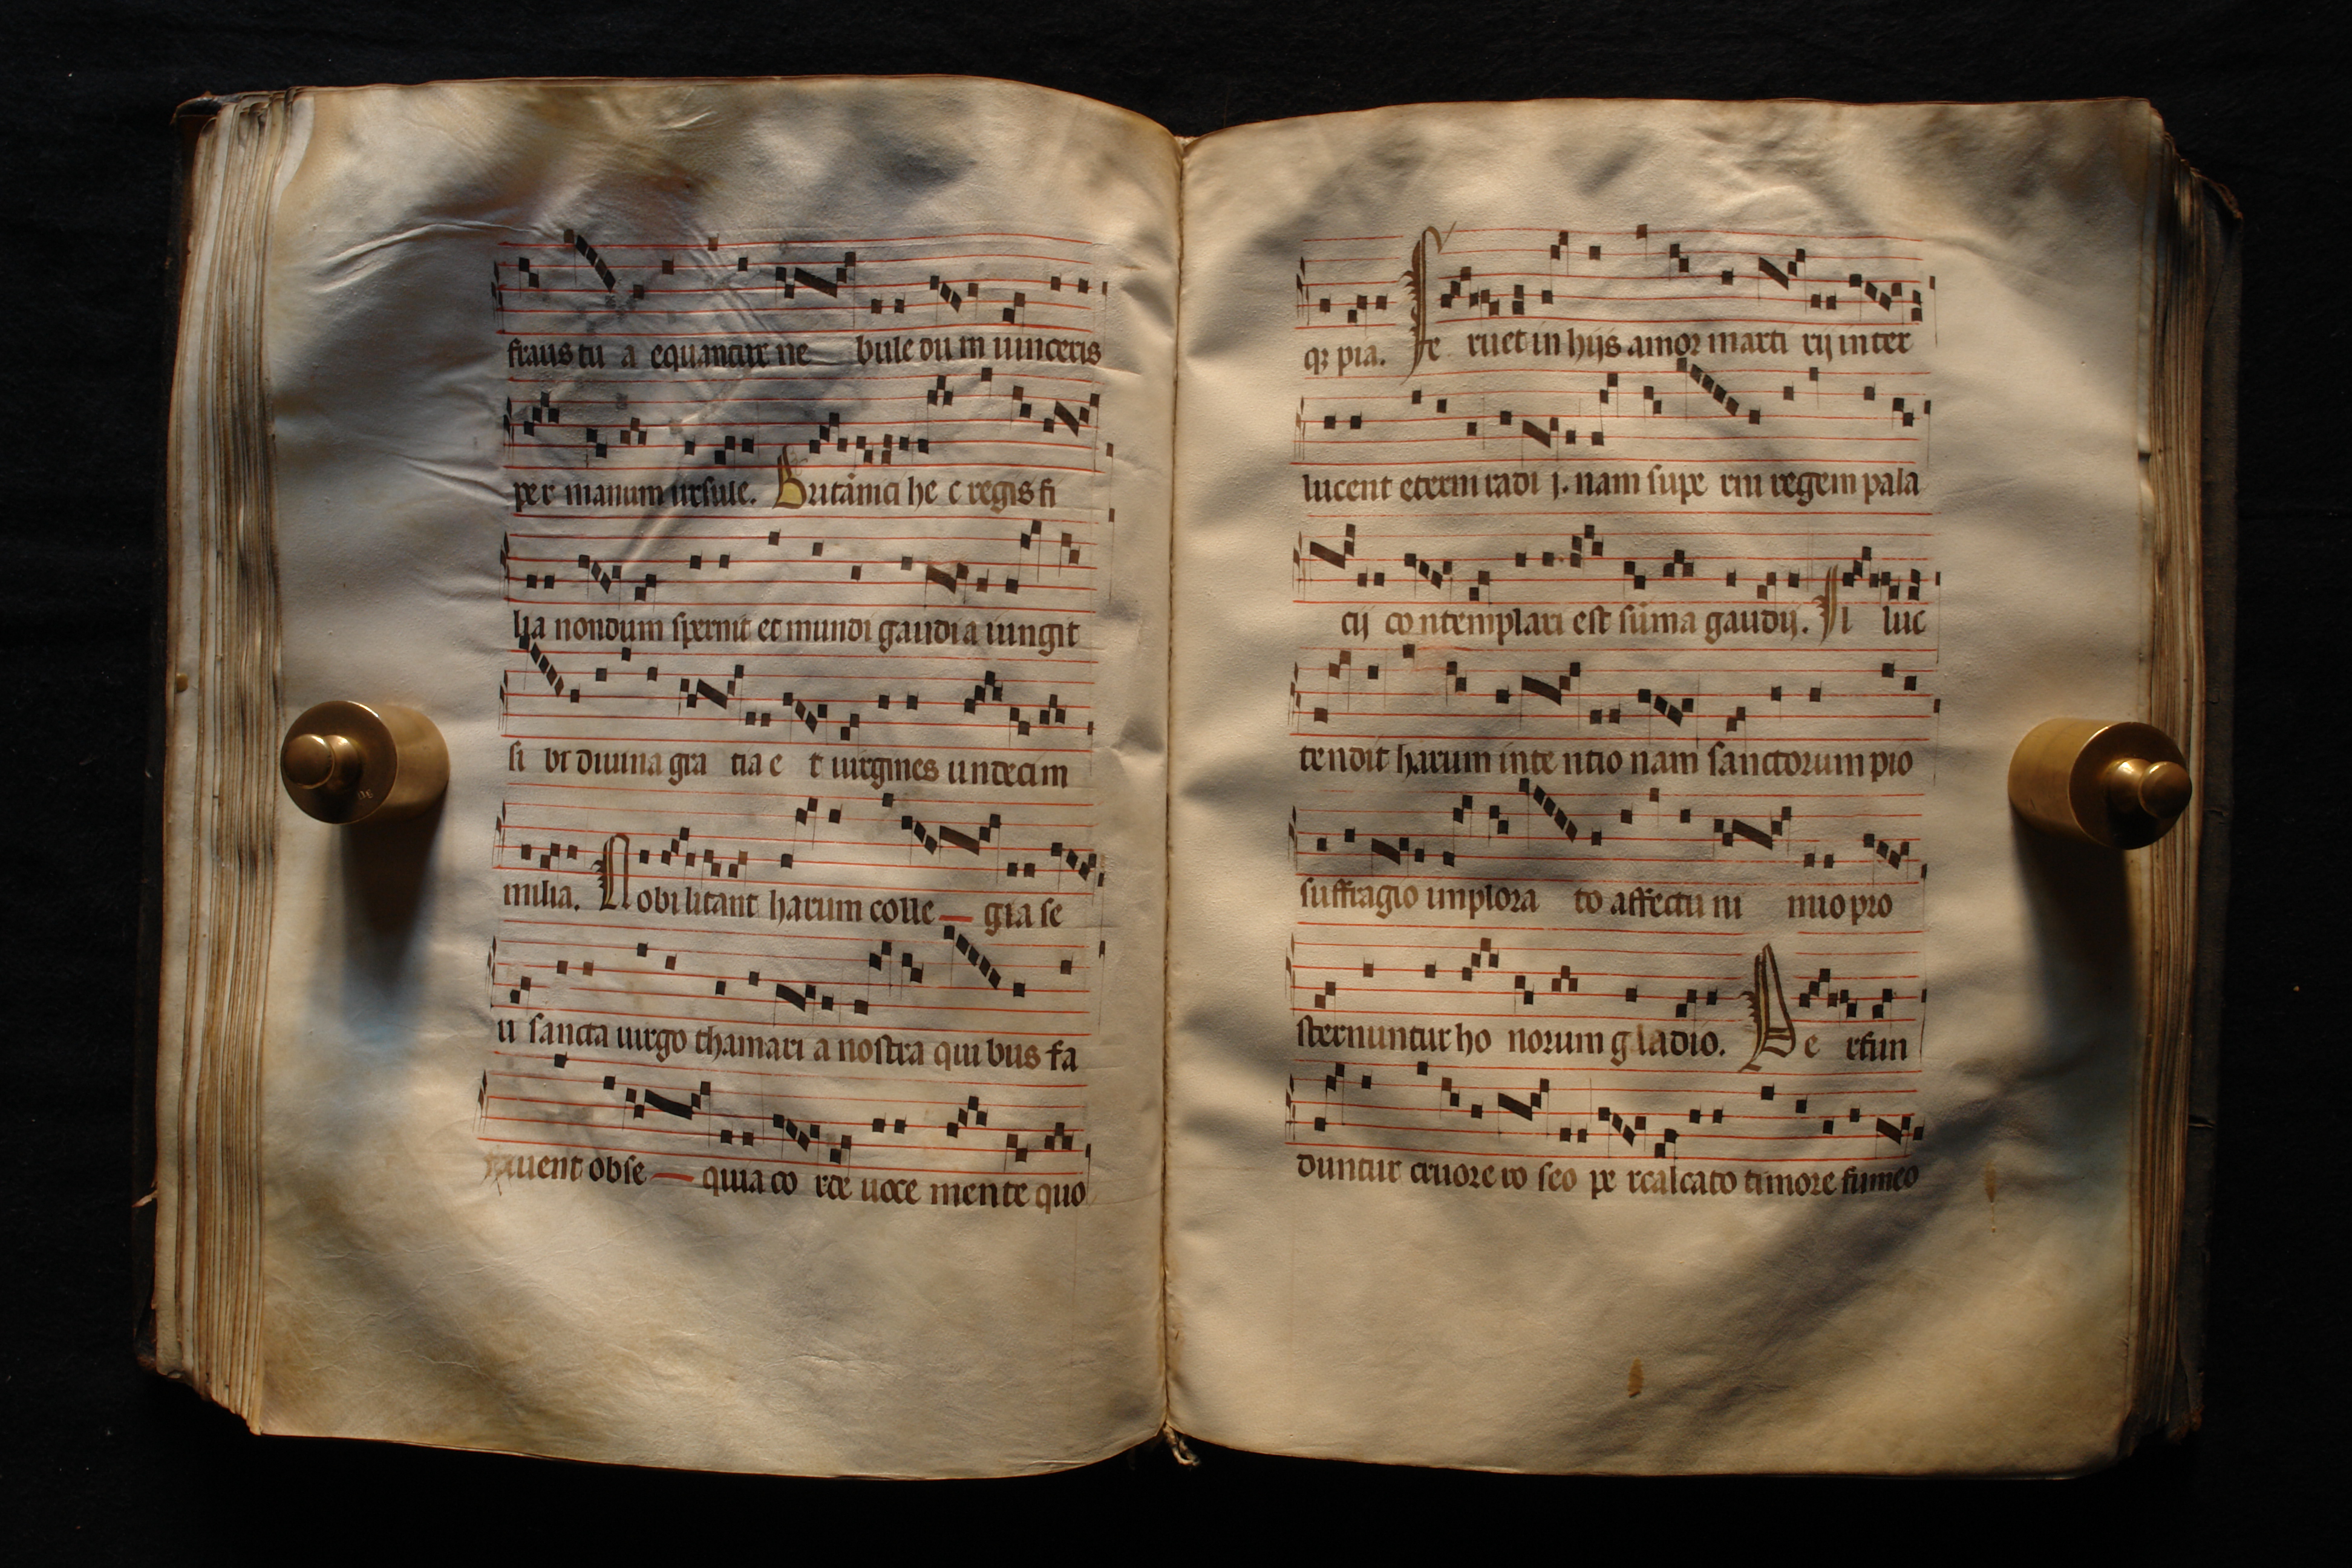 fraus tu a equantur ne bule du m uinceris
per manum ursule. Britānici he c regis fi
lia nondum spernit et mundi gaudi a iungit
si bi diuina gra tia e t uirgines undecim
milia. Nobilitant harum colle — gia se
u sancta uirgo thamari a nostra qui bus fa
uent obse — quia co rde uoce mente quo
qꝫ pia. Fe ruet in hijs amor marti rij inter
lucent eterni radi j. nam supe rni regem pala
cij co ntemplari est sūma gaudij. Il luc
tendit harum inte ntio nam sanctorum pio
suffragio implora to affectu ni mio pro
sternuntur ho norum gladio. Pe rfun
duntur cruore ro seo pe rcalcato timore fumeo